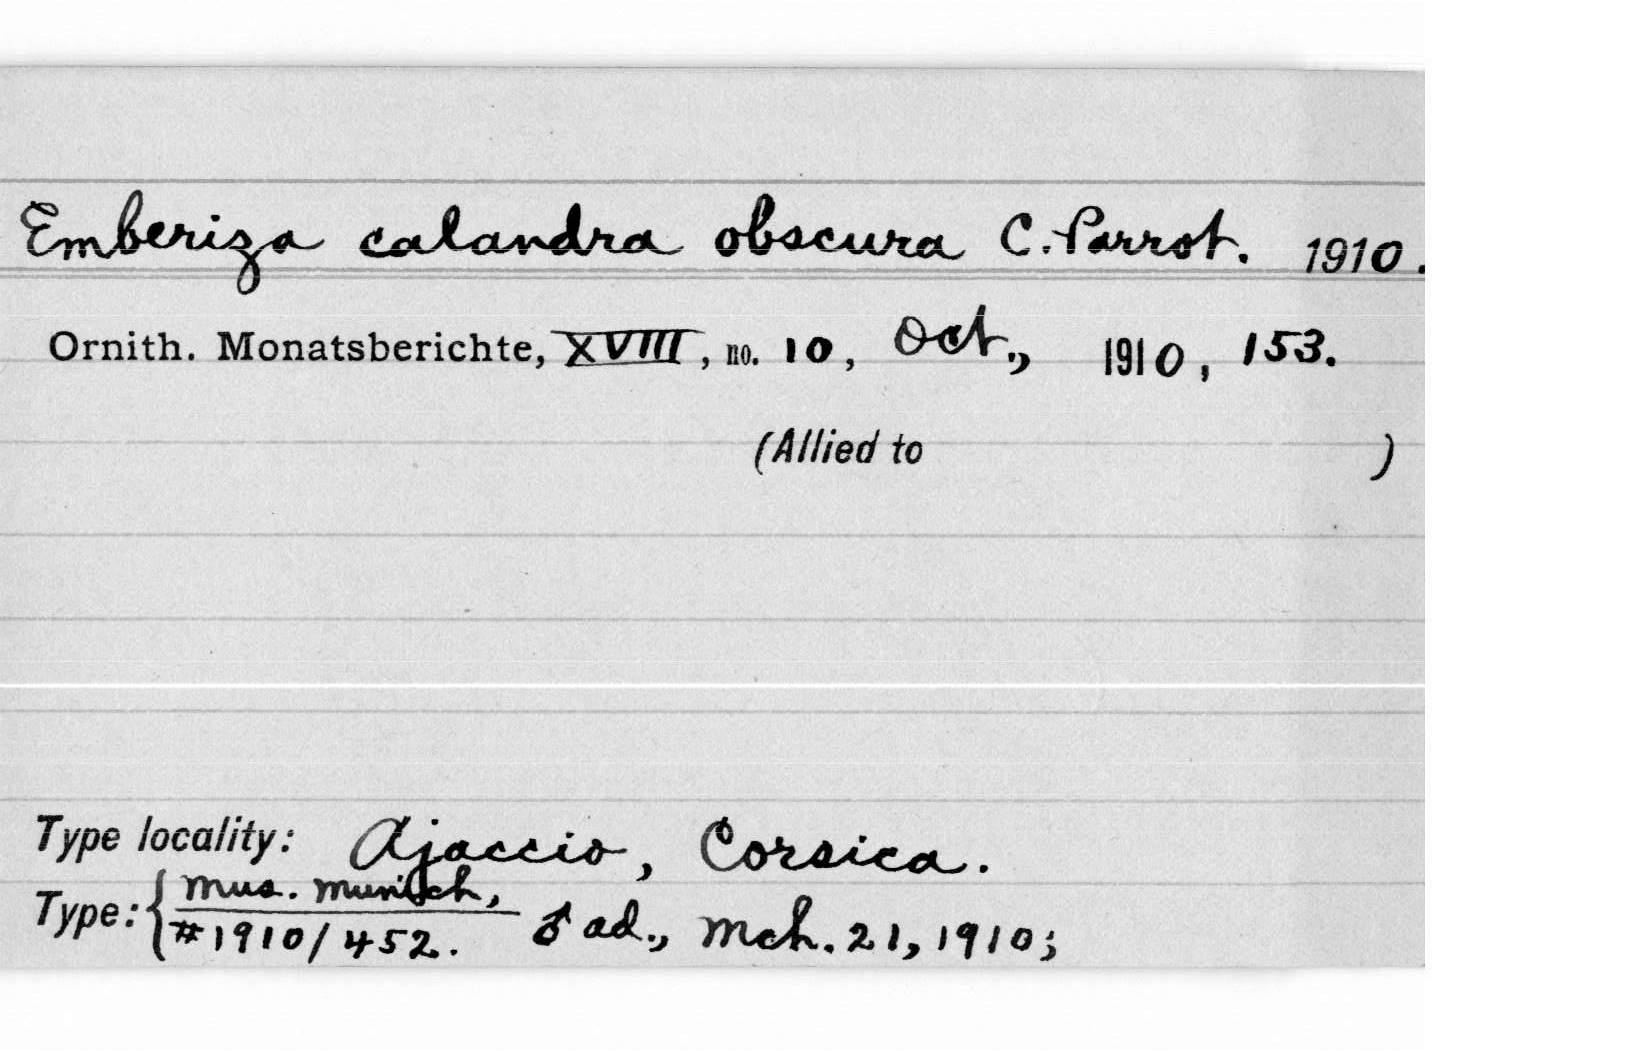 Emberiza calandra obscura C. Parrot. 1910.
Ornith. Monatsberichte, XVIII, no. 10, Oct., 1910, 153.
(Allied to )
Type locality: Ajaccio, Corsica.
Type: { Mus. Munich,
#1910/452. ♂ ad., Mch. 21, 1910;